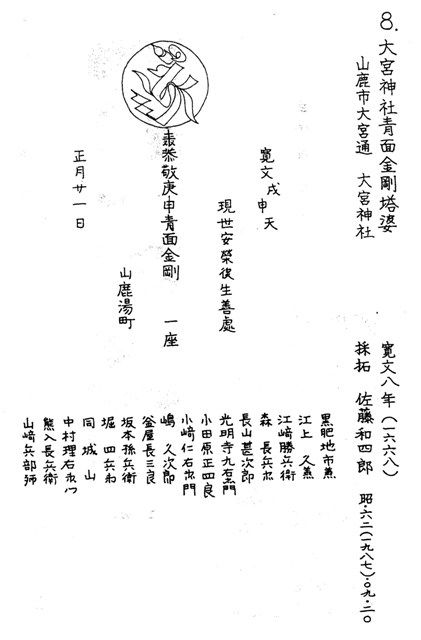 8.大宮神社青面金剛塔婆
山鹿市大宮通 大宮神社
寛文八年(一六六八)
採拓 佐藤和四郎 昭.六二(一九八七).〇九.二〇
寛文戌申天
現世安榮後生善處
恭敬庚申青面金剛 一座
山鹿湯町
正月廿一日
黒肥地市兼
江上久兼
江﨑勝兵衛
森長兵衛
長山甚次郎
光明寺九右衛門
小田原正四良
小﨑仁右衛門
嶋久次郎
釜屋長三良
坂本孫兵衛
堀四兵衛
同城山
中村理右衛門
熊入長兵衛
山﨑兵部